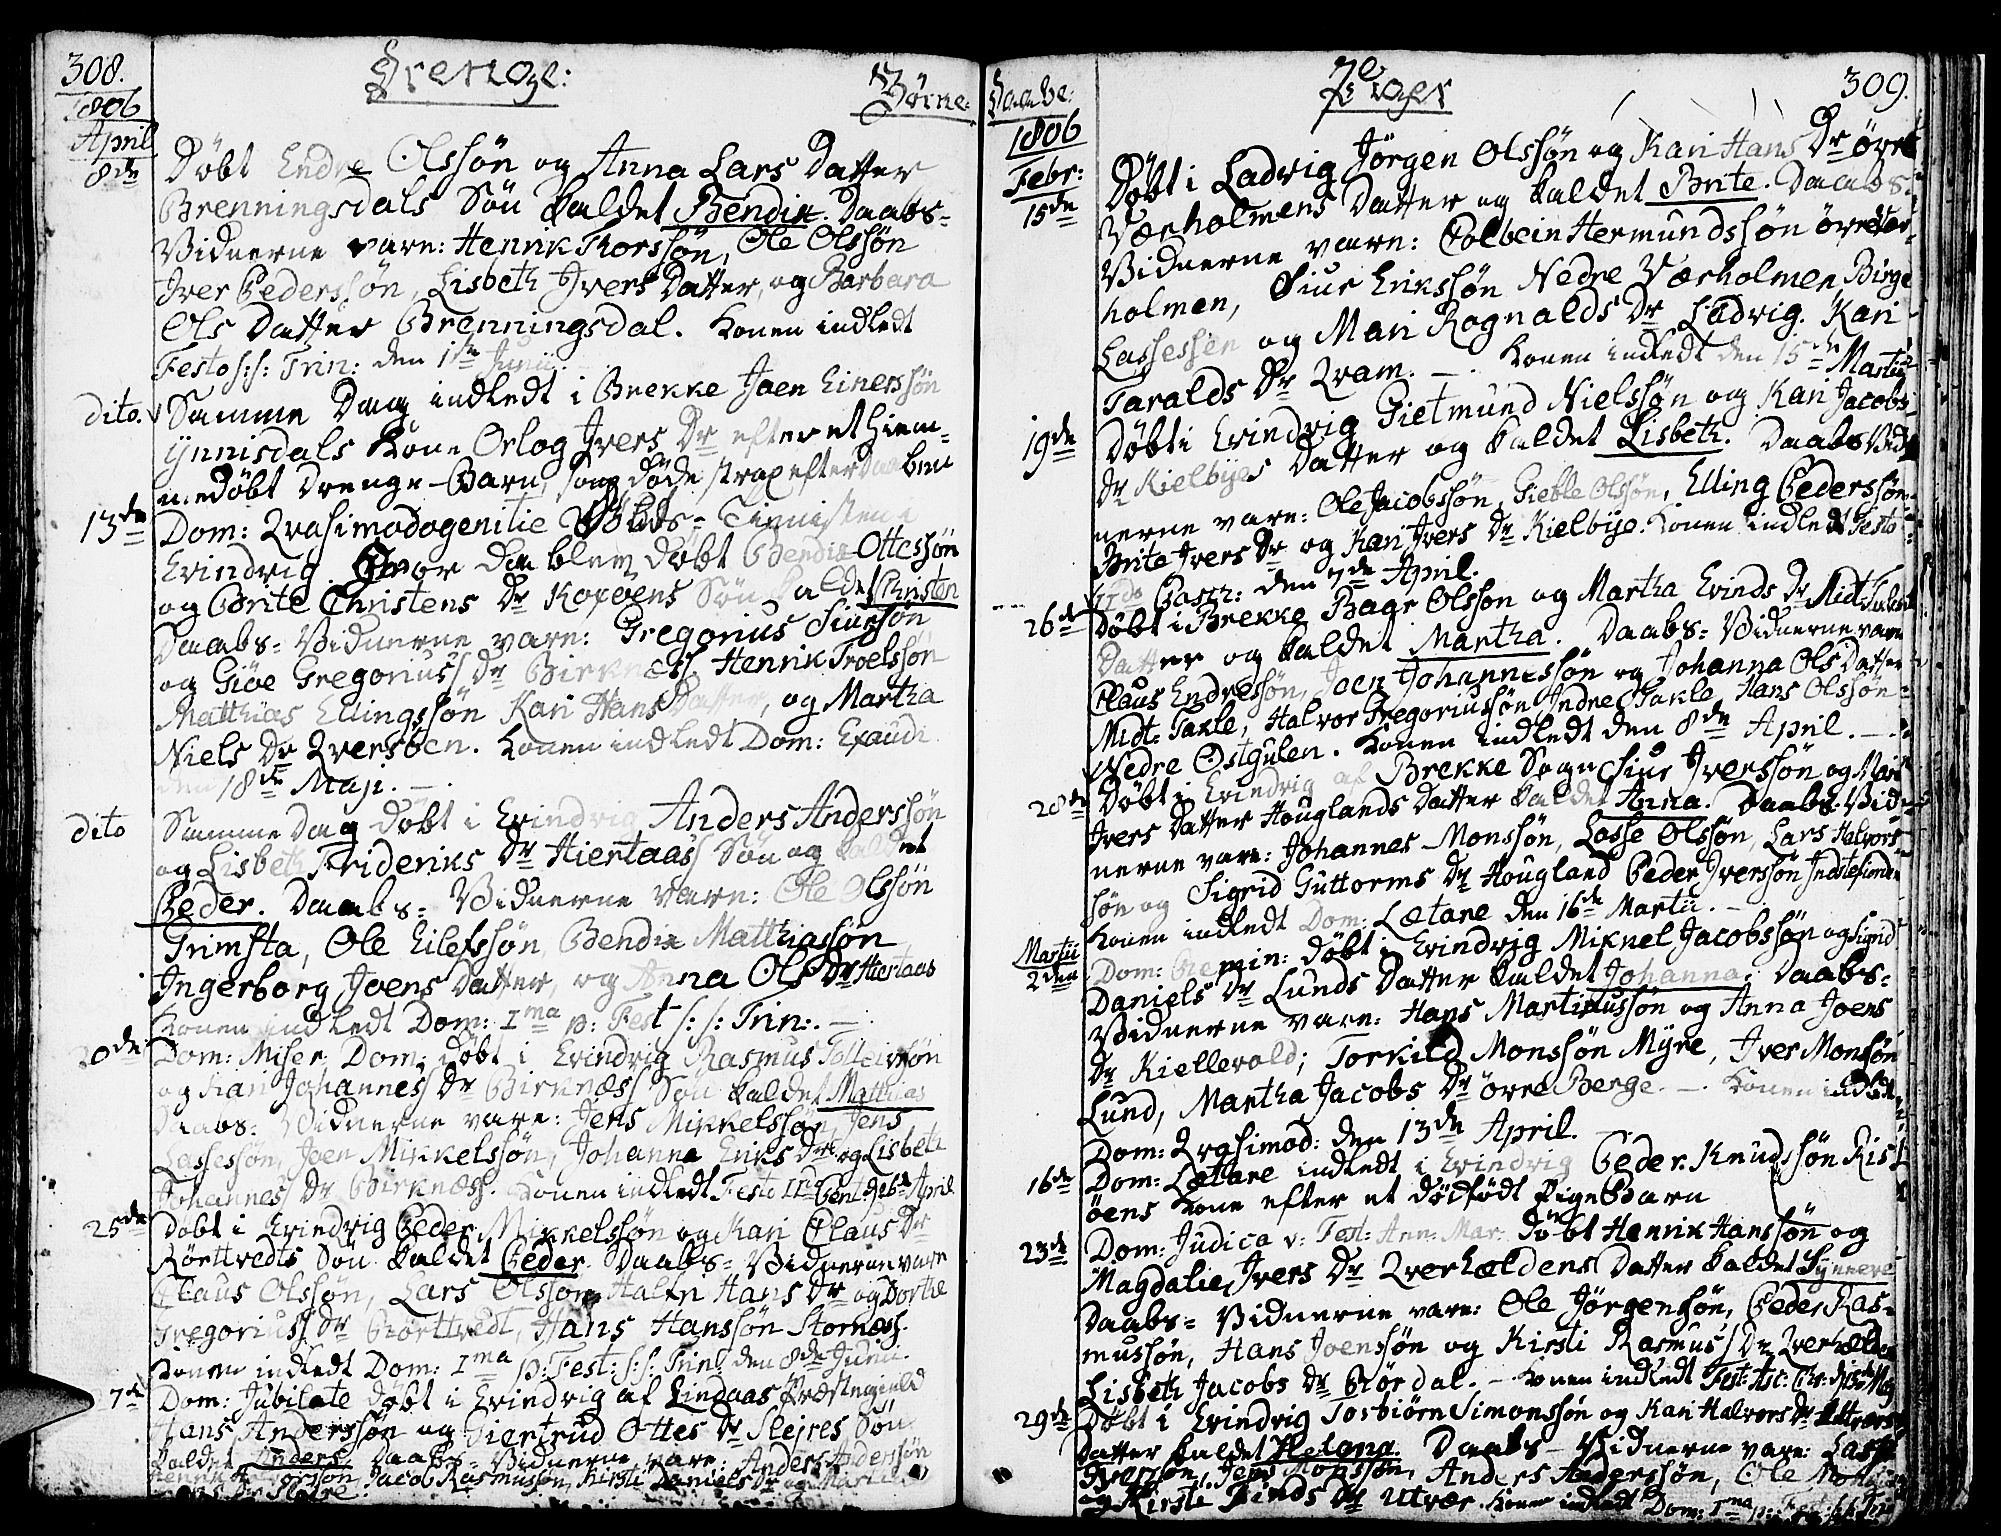 308.
Drenge:
Børne:
1806
April
8de
Døbt Endre Olssøn og Anna Lars Datter
Brenningsdals Søn kaldet Bendix. Daabs-
Vidnerne vare: Henrik Thorssøn, Ole Olssøn
Iver Pederssøn, Lisbeth Ivers Datter, og Barbara
Ols Datter Brenningsdal. Konen indledt
Festo s: s: Trin: den 1ste Junii.
dito. Samme Dag indledt i Brekke Joen Einerssøn
Ynnisdals Kone Orlog Ivers Dr efter et hiem-
medøbt Drenge-Barn, som døde strax efter Daaben
13de Dom: Qvasimodogenitie
Evindvig. Hvor da blev døbt Bendix Ottessøn
og Brite Christens Dr Koxøens Søn kaldet Christen
Daabs-Vidnerne vare: Gregorius Siurssøn
og Giøe Gregorius Dr Birknæss. Henrik Troelssøn
Matthias Ellingssøn Kari Hans Datter, og Martha
Niels Dr Qversøen. Konen indledt Dom: Exaudi
den 18de Maji. —
dito Samme Dag døbt i Evindvig Anders Anderssøn
og Lisbeth Frideriks Dr Hiertaass Søn og kaldet
Peder. Daabs-Vidnerne vare: Ole Olssøn
Grimsta, Ole Eilefssøn, Bendix Matthiassøn
Ingerborg Joens Datter, og Anna Ols Dr Hiertaas
Konen indledt Dom: 1ma p: Fest s: s: Trin: —
20de Dom: Miser: Dom: døbt i Evindvig Rasmus Tolleivssøn
og Kari Johannes Dr Birknæss Søn kaldet Matthias
Daabs-Vidnerne vare: Jens Mikkelssøn, Jens
Lassessøn, Joen Mikkelssøn, Johanna Eriks Dr og Lisbeth
Johannes Dr Birknæss. Konen indledt Festo II Pent: d: 26de April
25de Døbt i Evindvig Peder Mikkelssøn og Kari Claus Dr
Rørttvedts Søn kaldet Peder. Daabs-Vidnerne vare
Claus Olssøn, Lars Olssøn, Hans Dr og Dorthe
Gregorius Dr Rørttvedt, Hans Hanssøn Stornæss.
Konen indledt Dom: 1ma p: Fest: s: s: Trin: den 8de Junii.
7de Dom: Jubilate døbt i Evindvig af Lindaas Præstegield
Hans Anderssøn og Giertrud Ottes Dr Slejres Søn
kaldet Anders. Daabs-Vidnerne vare: Anders Anderssøn
Jacob Rasmussøn, Kirsti Daniels Dr og
309.
Daabe:
Piger
1806
Febr:
15de
Døbt i Ladvig Jörgen Olssøn og Kari Hans Dr øvre
Værholmens Datter og kaldet Brite. Daabs-
Vidnerne vare: Colbein Hermundssøn øvre Vær-
holmen, Siur Erikssøn Nedre Værholmen Birge
Lassessen og Mari Rognalds Dr Ladvig. Kari
Taralds Dr Qvam. —. Konen indledt den 15de Martii
19de Døbt i Evindvig Gietmund Nielssøn og Kari Jacobs
Dr Kielbyes Datter og kaldet Lisbeth. Daabs Vid-
nerne vare: Ole Jacobssøn, Gietle Olssøn, Elling Pederssøn
Brite Ivers Dr og Kari Ivers Dr Kielbye. Konen indledt Festo
IIdo Pasch: den 7de April.
26de Døbt i Brekke Bage Olsson og Martha Evinds Dr Midt Takle
Datter og kaldet Martha. Daabs-Vidnerne vare
Claus Endressøn, Joen Johannessøn og Johanna Ols Datter
Midt-Takle, Halvor Gregoriussøn Indre Takle Hans Olssøn
Nedre Østgulen. Konen indledt den 8de April. —.
28de Døbt i Evindvig af Brekke Sogn Siur Iverssøn og Mari
Ivers Datter Houglands Datter kaldet Anna. Daabs-Vid-
nerne vare: Johannes Monssøn, Lasse Olssøn, Lars Halvors-
søn og Sigrid Guttorms Dr Hougland Peder Iverssøn Indrefiorden
Konen indledt Dom: Lætare den 16de Martii. —
Martii
2den Dom: Remin: døbt i Evindvig Mikkel Jacobssøn og Sigrid
Daniels Dr Lunds Datter kaldet Johanna. Daabs-
Vidnerne vare: Hans Martinussøn og Anna Joens
Dr Kiellevold; Torkild Monssøn Myre, Iver Monssøn
Lund, Martha Jacobs Dr øvre Berge. —. Konen indledt
Dom: Qvasimod: den 13de April.
16de Dom: Lætare indledt i Evindvig Peder Knudssøn Ris-
øens Kone efter et dødfødt Pige Barn
23de Dom: Judica v: Fest: Ann: Mar: døbt Henrik Hanssøn og
Magdalie Ivers Dr Qverhældens Datter kaldet Synneve
Daabs-Vidnerne vare: Ole Jørgenssøn, Peder Ras-
mussøn, Hans Joenssøn og Kirsti Rasmus Dr Qverhælden
Lisbeth Jacobs Dr Rørdal. — Konen indledt Fest: Asc: Chr: d: 15de Maj
29de Døbt i Evindvig Torbiørn Simonssøn og Kari Halvors Dr Utværs
Datter kaldet Helena. Daabs-Vidnerne vare: Lasse
Iverssøn, Jens Monssøn, Anders Anderssøn, Ole
og Kirsti Dr Utvær. Konen indledt Dom: 1ma p: Fest: s: s: Trin